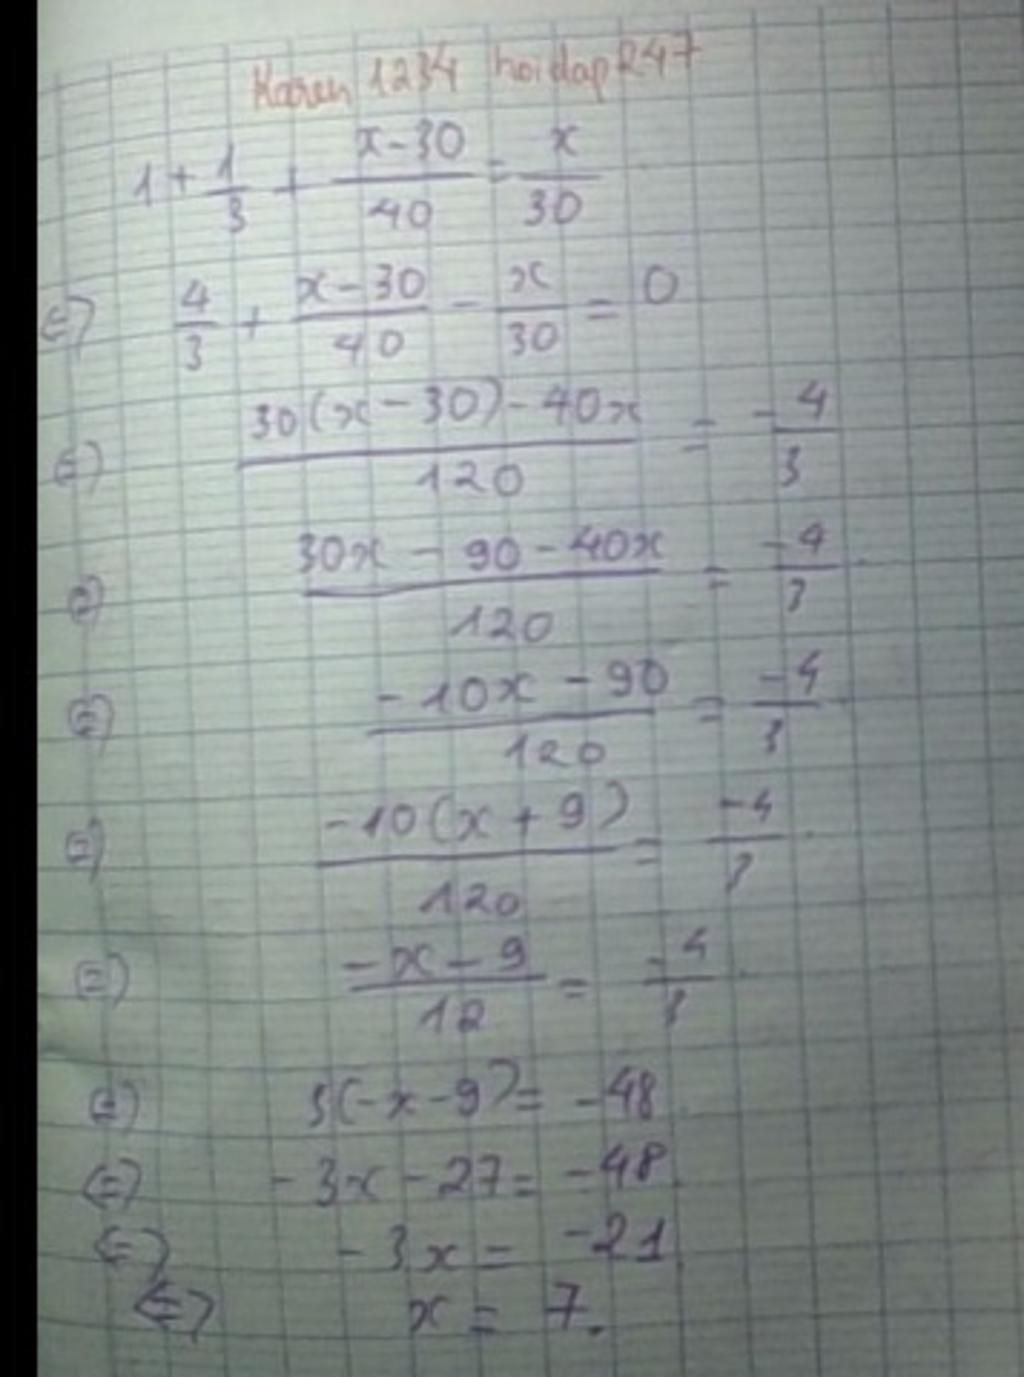 Karen 1234 hoidap247
1 + 1/3 + (x-30)/40 = x/30
<=> 4/3 + (x-30)/40 - x/30 = 0
<=> (30(x-30)-40x)/120 = -4/3
<=> (30x - 90 - 40x)/120 = -4/3
<=> (-10x - 90)/120 = -4/3
<=> (-10(x+9))/120 = -4/3
<=> (-x-9)/12 = -4/3
<=> 3(-x-9) = -48
<=> -3x - 27 = -48
<=> -3x = -21
<=> x = 7.